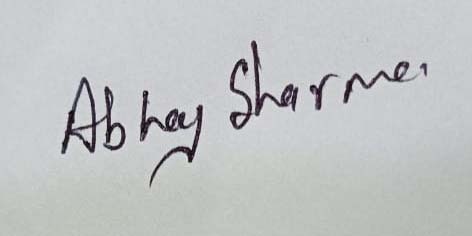 Abhay Sharma.